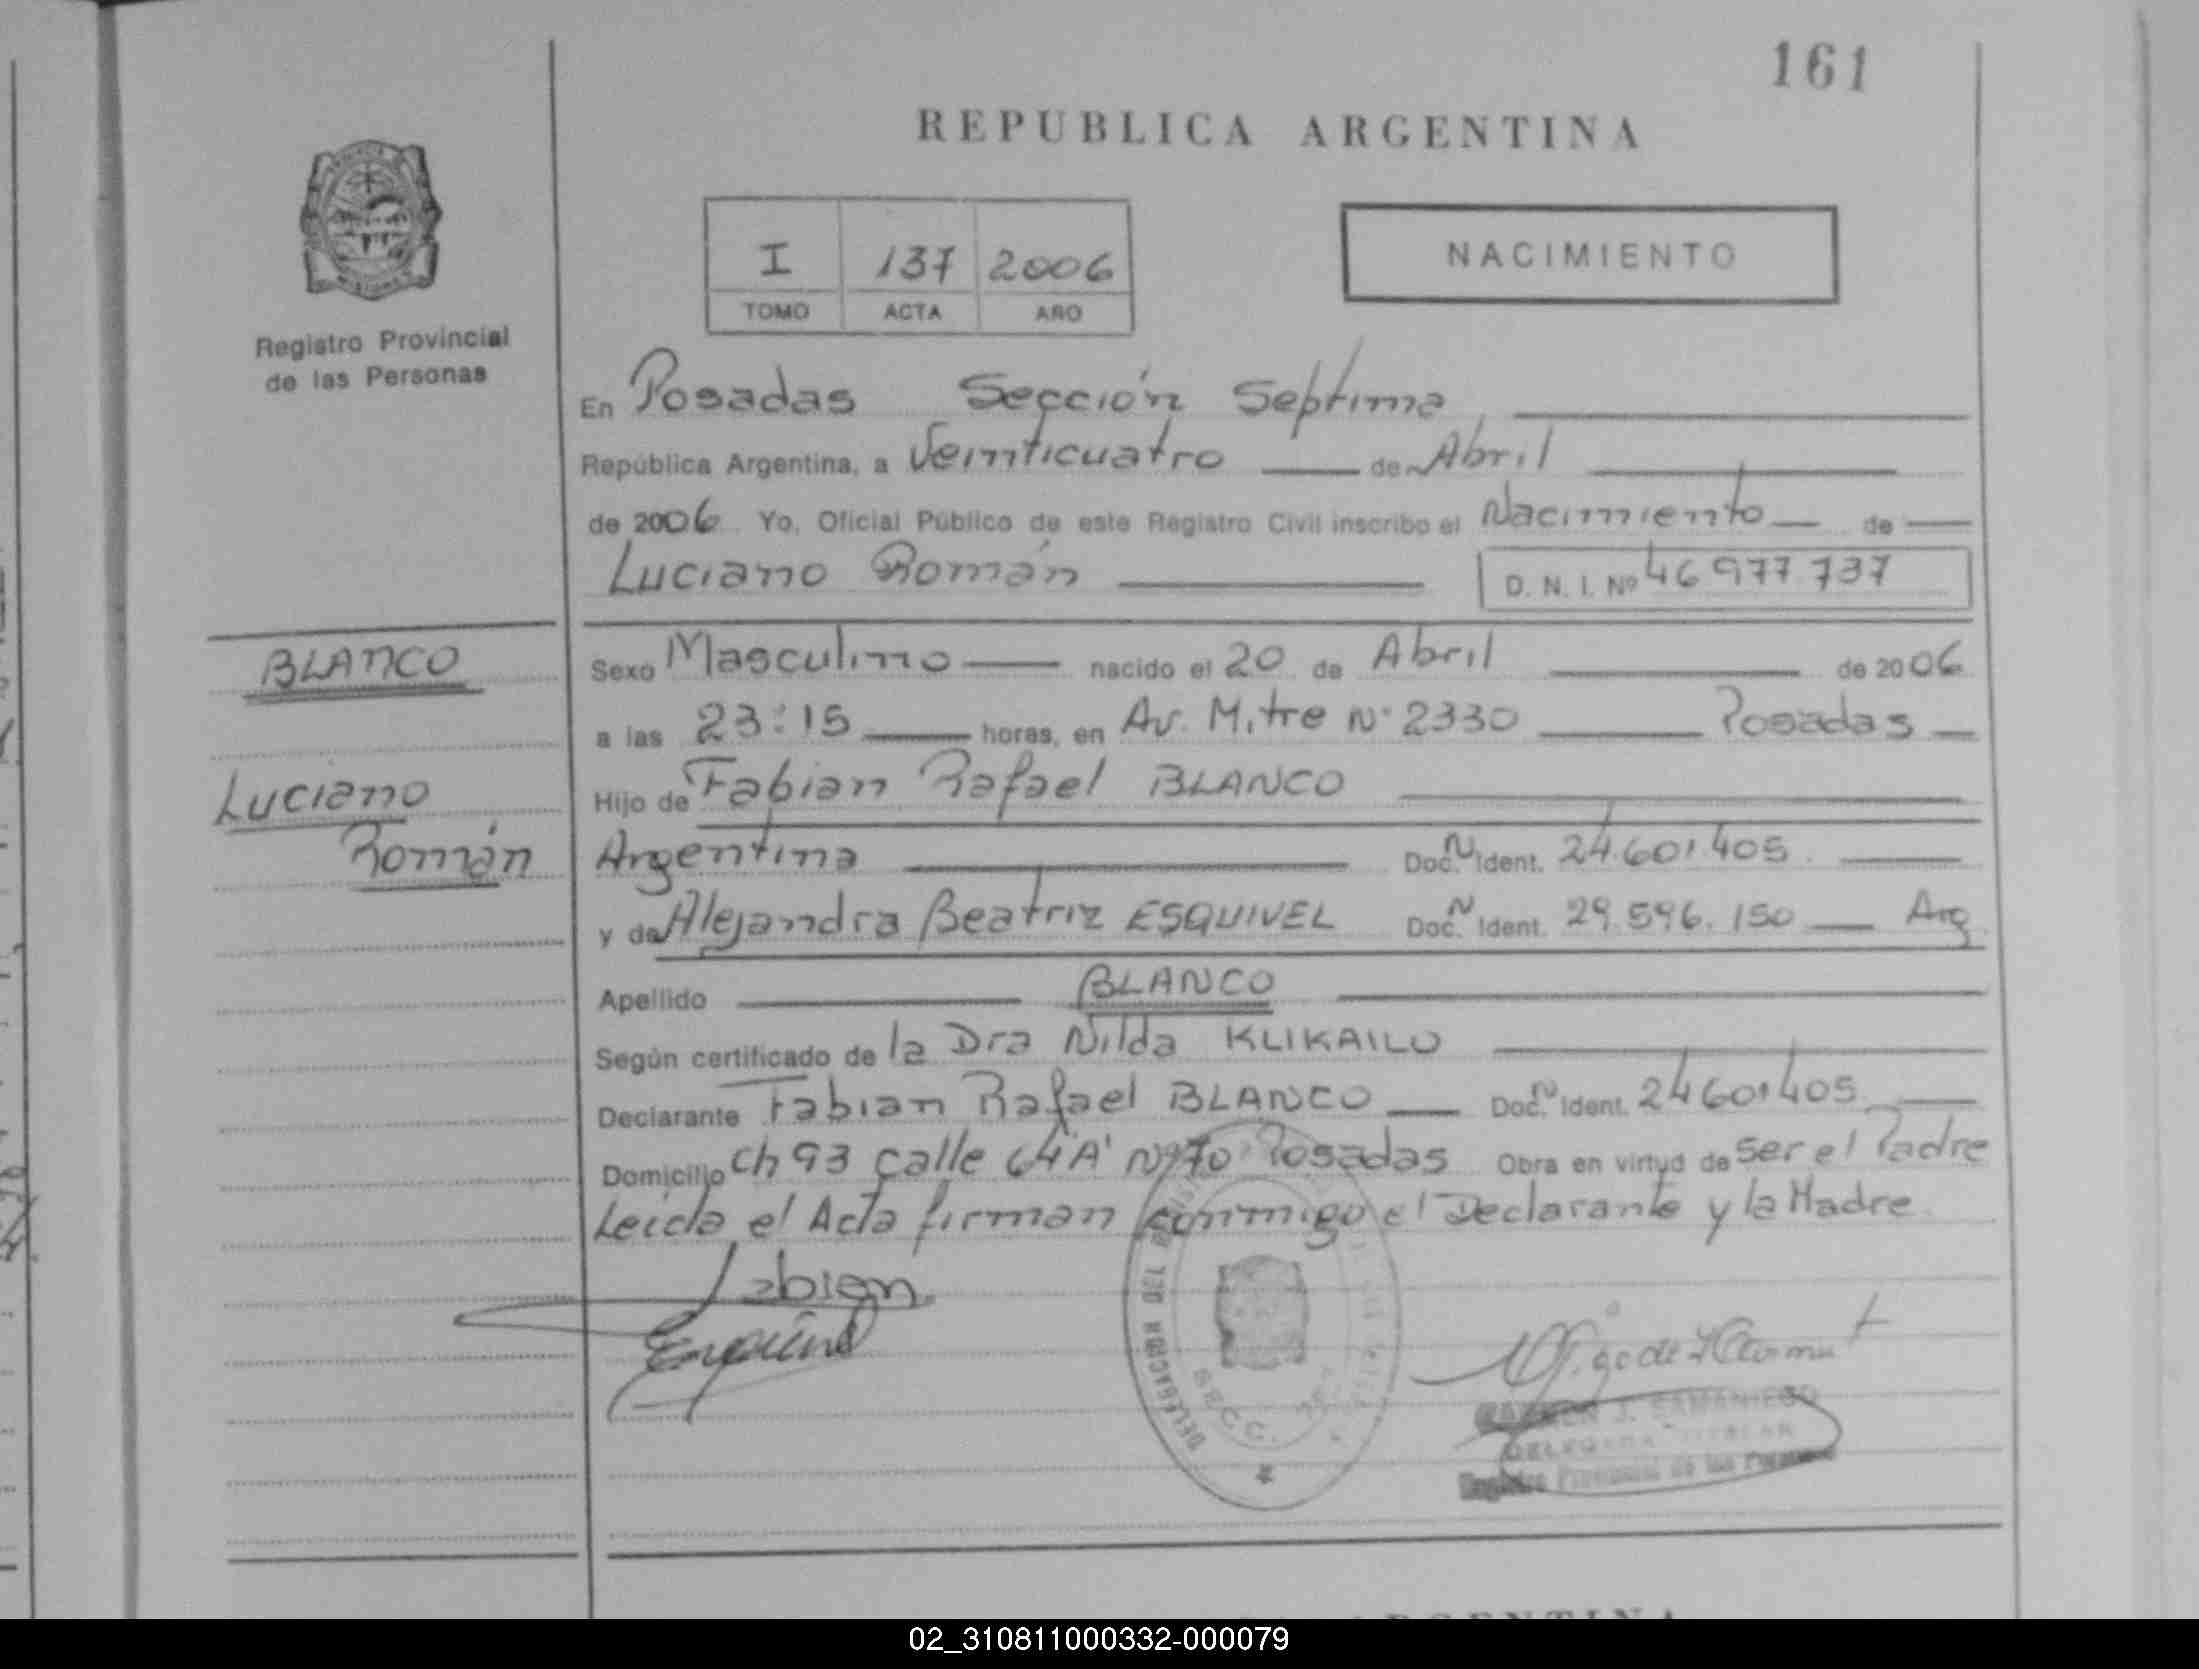 161
REPUBLICA ARGENTINA
I 137 2006
TOMO ACTA AÑO
NACIMIENTO
Registro Provincial
de las Personas
En Posadas Sección Septima
República Argentina, a Veinticuatro de Abril
de 2006 Yo, Oficial Público de este Registro Civil inscribo el Nacimiento de
Luciano Román D. N. I. Nº 46 977 737
BLANCO
Luciano
Román
Sexo Masculino nacido el 20 de Abril de 2006
a las 23:15 horas, en Av. Mitre Nº 2330 Posadas
Hijo de Fabian Rafael BLANCO
Argentina Doc. N Ident. 24.601.405
y de Alejandra Beatriz ESQUIVEL Doc. N Ident. 29.596.150 Arg
Apellido BLANCO
Según certificado de la Dra Nilda KLIKAILO
Declarante Fabian Rafael BLANCO Doc. N Ident. 24601405
Domicilio Ch 93 calle 64'A' Nº 70 Posadas Obra en virtud de ser el Padre
Leída el Acta firman conmigo el Declarante y la Madre
Fabian
Esquivel
DELEGACION DEL
SECC.
CARMEN J. SAMANIEGO
DELEGADA TITULAR
Registro Provincial de las Personas
ARGENTINA
02_310811000332-000079